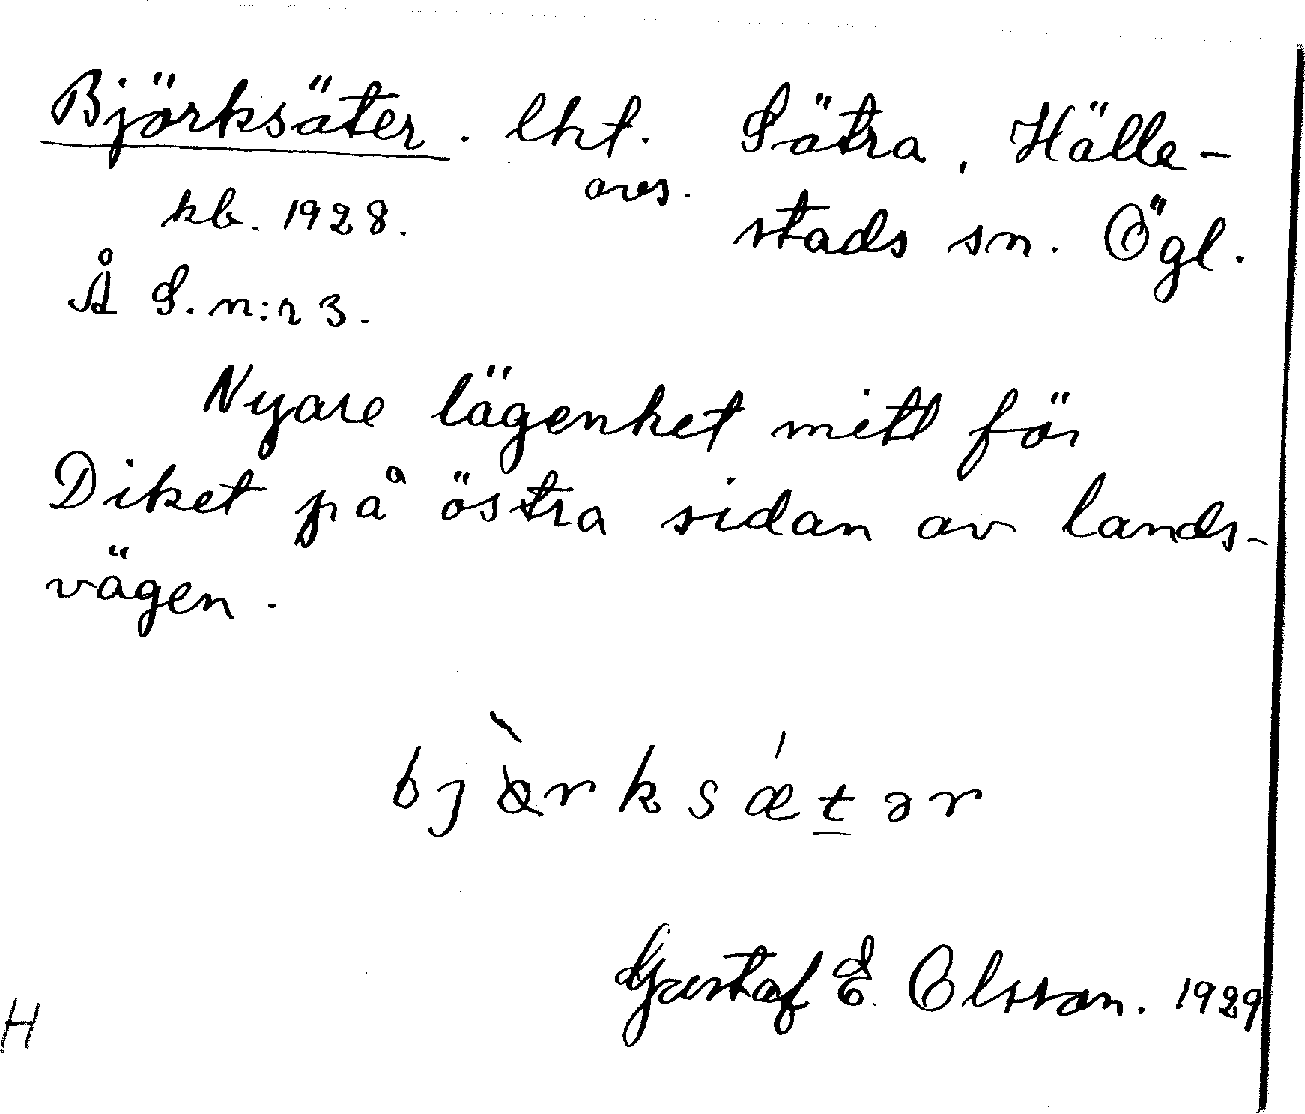 Björksäter. lht. Sätra, Hälle-
kb. 1928. avs. stads sn. Ögl.
Å S. n:r 3.
Nyare lägenhet mitt för
Diket på östra sidan av lands-
vägen.
Gustaf E. Olsson. 1929
H